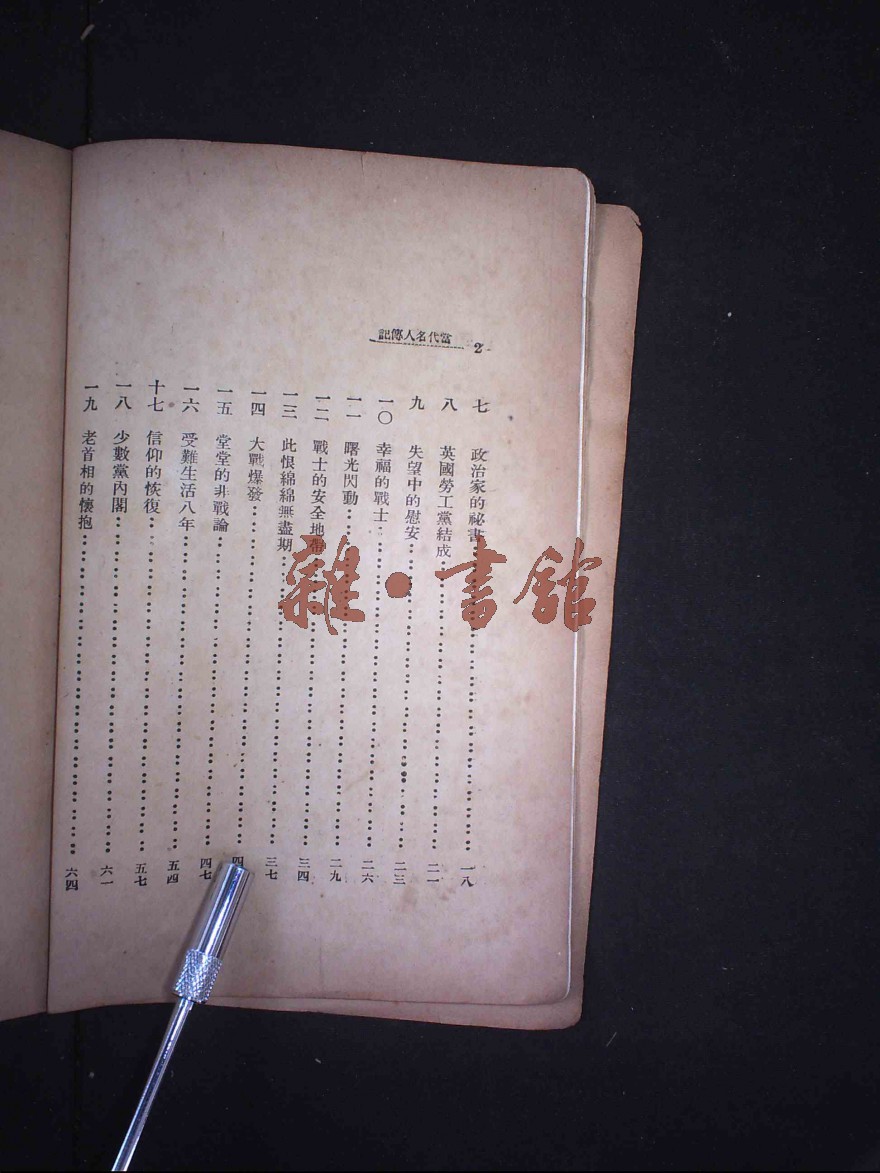 當代名人傳記
2
七 政治家的祕書 一八
八 英國勞工黨結成 二一
九 失望中的慰安 二三
一〇 幸福的戰士 二六
一一 曙光閃動 二九
一二 戰士的安全地帶 三四
一三 此恨綿綿無盡期 三七
一四 大戰爆發 四
一五 堂堂的非戰論 四七
一六 受難生活八年 五四
十七 信仰的恢復 五七
一八 少數黨內閣 六一
一九 老首相的懷抱 六四
雜·書館